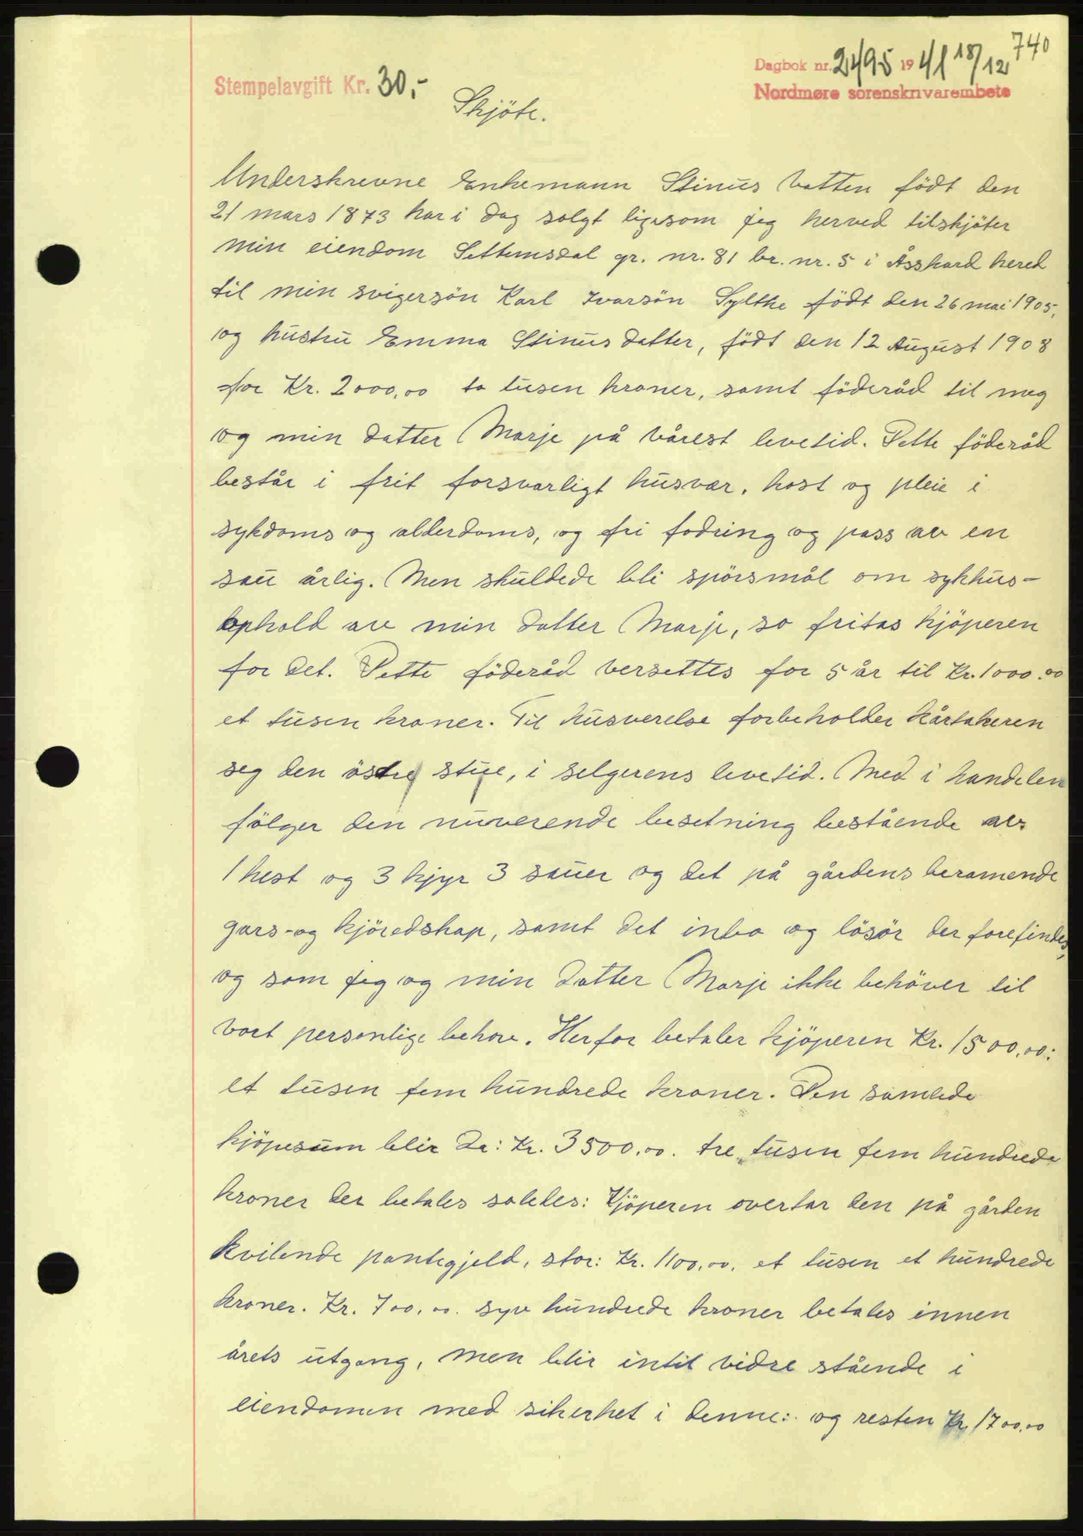 740
Stempelavgift Kr. 30,-
Dagbok nr. 2495 1941 18/12
Nordmøre sorenskrivarembete
Skjöte.
Underskrevne Enkemann Stinus Vatten födt den
21 mars 1873 har i dag solgt ligesom jeg herved tilskjöter
min eiendom Settemsdal gr. nr. 81 br. nr. 5 i Åsskard hered
til min svigersön Karl Ivarsön Sylthe födt den 26 mai 1905,
og hustru Emma Stinusdatter, födt den 12 August 1908
for Kr. 2000,00 to tusen kroner, samt föderåd til meg
og min datter Marje på vårest levetid. Dette föderåd
består i frit forsvarligt husvær, kost og pleie i
sykdoms og alderdoms, og fri fodring og pass av en
sau årlig. Men skuldede bli spörsmål om sykhus-
ophold av min datter Marje, so fritas kjöperen
for det. Dette föderåd versettes for 5 år til Kr. 1000.00
et tusen kroner. Til husverelse forbeholder kårtakeren
seg den östre stue, i selgerens levetid. Med i handelen
fölger den nuverende besetning bestående av
1 hest og 3 kjyr 3 sauer og det på gårdens beramende
gars- og kjöredskap, samt det inbo og lösör der forefindes,
og som jeg og min datter Marje ikke behöver til
vort personlige behov. Herfor betaler kjöperen Kr. 1500,00:
et tusen fem hundrede kroner. Den samlede
kjöpesum blir Da: Kr. 3500,00. tre tusen fem hundrede
kroner der betales soledes: Kjöperen overtar den på gården
kvilende pantegjeld, stor: Kr. 1100,00. et tusen et hundrede
kroner. Kr. 700,00. syv hundrede kroner betales innen
årets utgang, men blir intil vidre stående i
eiendomen med sikerhet i denne: og resten Kr 1700,00